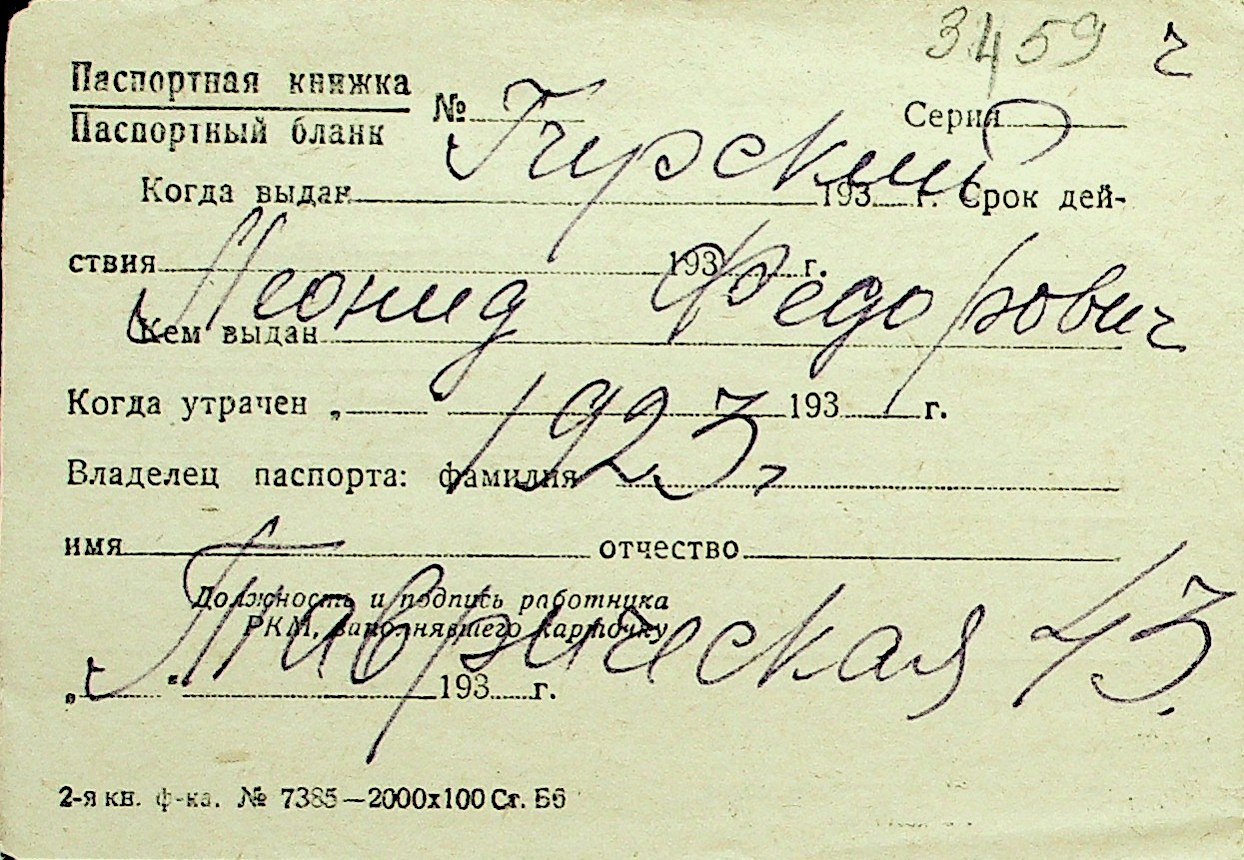 3459 г
Паспортная книжка
Паспортный бланк
№ Серия
Гирский
Когда выдан 193 г. Срок дей-
ствия 193 г.
Леонид Федорович
Кем выдан
Когда утрачен „ “ 193 г.
1923 г
Владелец паспорта: фамилия
имя отчество
Должность и подпись работника
РКМ, заполнявшего карточку
Таврическая 43.
„ “ 193 г.
2-я кн. ф-ка. № 7385—2000х100 Ст. Б6